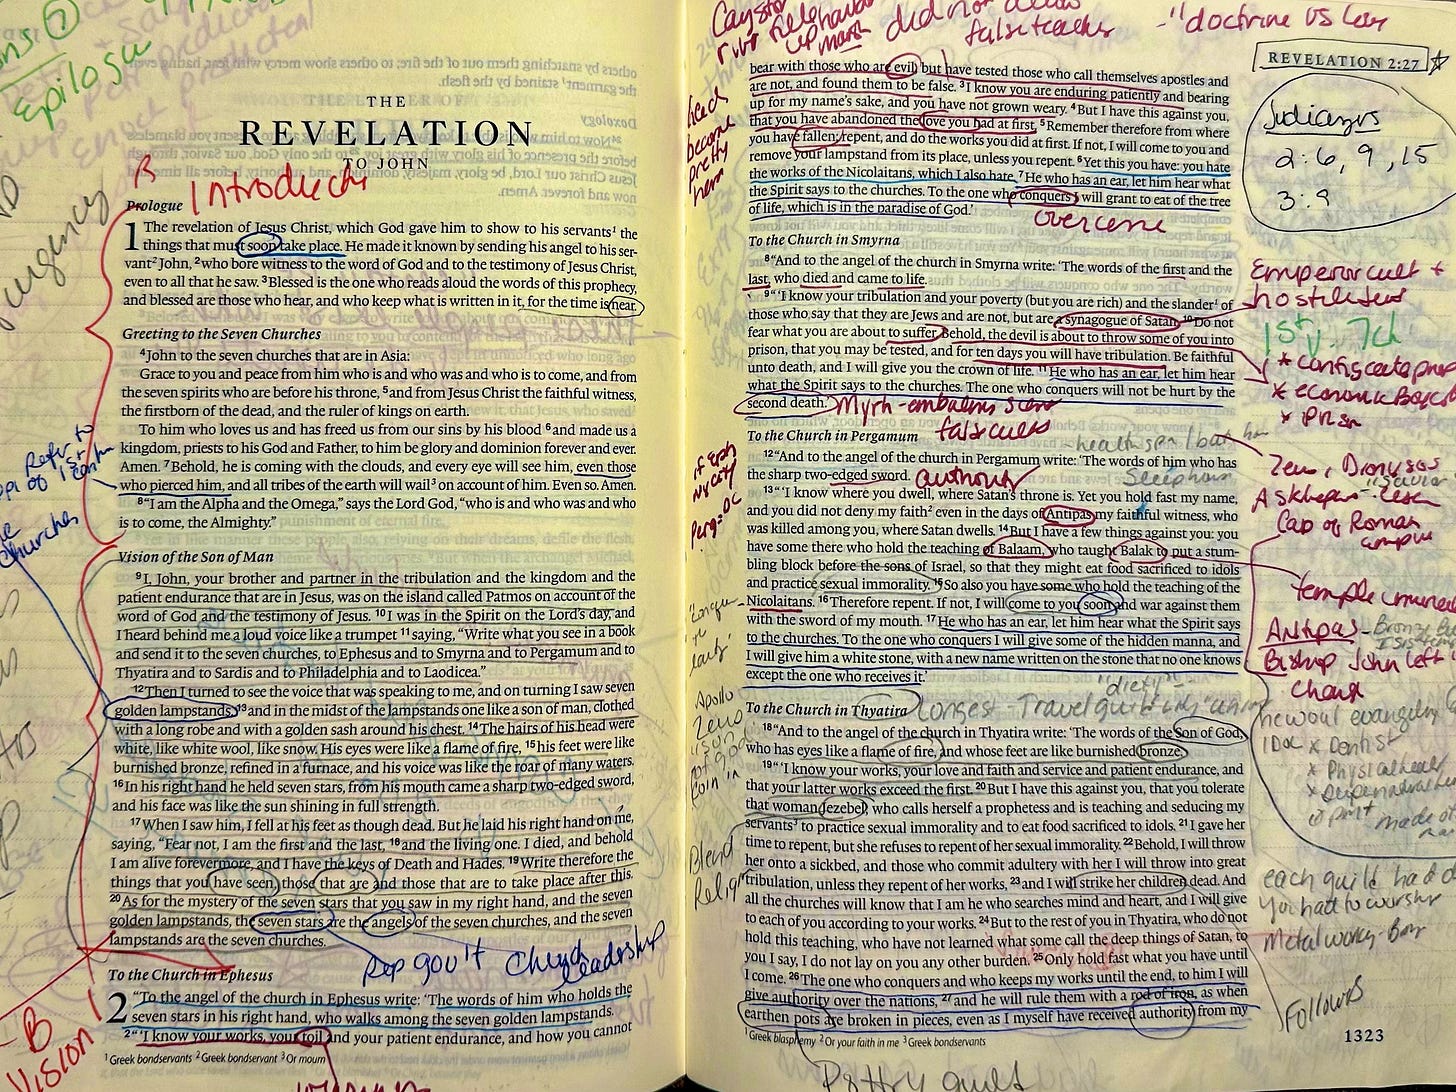 THE
REVELATION
TO JOHN
Introducti
Prologue
1 The revelation of Jesus Christ, which God gave him to show to his servants¹ the
things that must soon take place. He made it known by sending his angel to his ser-
vant² John, ²who bore witness to the word of God and to the testimony of Jesus Christ,
even to all that he saw. ³Blessed is the one who reads aloud the words of this prophecy,
and blessed are those who hear, and who keep what is written in it, for the time is near.
Greeting to the Seven Churches
⁴John to the seven churches that are in Asia:
Grace to you and peace from him who is and who was and who is to come, and from
the seven spirits who are before his throne, ⁵and from Jesus Christ the faithful witness,
the firstborn of the dead, and the ruler of kings on earth.
To him who loves us and has freed us from our sins by his blood ⁶and made us a
kingdom, priests to his God and Father, to him be glory and dominion forever and ever.
Amen. ⁷Behold, he is coming with the clouds, and every eye will see him, even those
who pierced him, and all tribes of the earth will wail³ on account of him. Even so. Amen.
⁸"I am the Alpha and the Omega," says the Lord God, "who is and who was and who
is to come, the Almighty."
Vision of the Son of Man
⁹I, John, your brother and partner in the tribulation and the kingdom and the
patient endurance that are in Jesus, was on the island called Patmos on account of the
word of God and the testimony of Jesus. ¹⁰I was in the Spirit on the Lord's day, and
I heard behind me a loud voice like a trumpet ¹¹saying, "Write what you see in a book
and send it to the seven churches, to Ephesus and to Smyrna and to Pergamum and to
Thyatira and to Sardis and to Philadelphia and to Laodicea."
¹²Then I turned to see the voice that was speaking to me, and on turning I saw seven
golden lampstands, ¹³and in the midst of the lampstands one like a son of man, clothed
with a long robe and with a golden sash around his chest. ¹⁴The hairs of his head were
white, like white wool, like snow. His eyes were like a flame of fire, ¹⁵his feet were like
burnished bronze, refined in a furnace, and his voice was like the roar of many waters.
¹⁶In his right hand he held seven stars, from his mouth came a sharp two-edged sword,
and his face was like the sun shining in full strength.
¹⁷When I saw him, I fell at his feet as though dead. But he laid his right hand on me,
saying, "Fear not, I am the first and the last, ¹⁸and the living one. I died, and behold
I am alive forevermore, and I have the keys of Death and Hades. ¹⁹Write therefore the
things that you have seen, those that are and those that are to take place after this.
²⁰As for the mystery of the seven stars that you saw in my right hand, and the seven
golden lampstands, the seven stars are the angels of the seven churches, and the seven
lampstands are the seven churches.
Rep gov't Church leadership
To the Church in Ephesus
2 "To the angel of the church in Ephesus write: 'The words of him who holds the
seven stars in his right hand, who walks among the seven golden lampstands.
²"'I know your works, your toil and your patient endurance, and how you cannot
¹Greek bondservants ²Greek bondservant ³Or mourn
Epilogue
urgency
churches
B
Vision 1
did not allow
false teachers
- "doctrine vs
REVELATION 2:27
bear with those who are evil, but have tested those who call themselves apostles and
are not, and found them to be false. ³I know you are enduring patiently and bearing
up for my name's sake, and you have not grown weary. ⁴But I have this against you,
that you have abandoned the love you had at first. ⁵Remember therefore from where
you have fallen; repent, and do the works you did at first. If not, I will come to you and
remove your lampstand from its place, unless you repent. ⁶Yet this you have: you hate
the works of the Nicolaitans, which I also hate. ⁷He who has an ear, let him hear what
the Spirit says to the churches. To the one who conquers I will grant to eat of the tree
of life, which is in the paradise of God.'
overcome
To the Church in Smyrna
⁸"And to the angel of the church in Smyrna write: 'The words of the first and the
last, who died and came to life.
⁹"'I know your tribulation and your poverty (but you are rich) and the slander¹ of
those who say that they are Jews and are not, but are a synagogue of Satan. ¹⁰Do not
fear what you are about to suffer. Behold, the devil is about to throw some of you into
prison, that you may be tested, and for ten days you will have tribulation. Be faithful
unto death, and I will give you the crown of life. ¹¹He who has an ear, let him hear
what the Spirit says to the churches. The one who conquers will not be hurt by the
second death.'
false cults
To the Church in Pergamum
¹²"And to the angel of the church in Pergamum write: 'The words of him who has
the sharp two-edged sword.
authority
¹³"'I know where you dwell, where Satan's throne is. Yet you hold fast my name,
and you did not deny my faith² even in the days of Antipas my faithful witness, who
was killed among you, where Satan dwells. ¹⁴But I have a few things against you: you
have some there who hold the teaching of Balaam, who taught Balak to put a stum-
bling block before the sons of Israel, so that they might eat food sacrificed to idols
and practice sexual immorality. ¹⁵So also you have some who hold the teaching of the
Nicolaitans. ¹⁶Therefore repent. If not, I will come to you soon and war against them
with the sword of my mouth. ¹⁷He who has an ear, let him hear what the Spirit says
to the churches. To the one who conquers I will give some of the hidden manna, and
I will give him a white stone, with a new name written on the stone that no one knows
except the one who receives it.'
To the Church in Thyatira
Longest - Travel guild city
¹⁸"And to the angel of the church in Thyatira write: 'The words of the Son of God,
who has eyes like a flame of fire, and whose feet are like burnished bronze.
¹⁹"'I know your works, your love and faith and service and patient endurance, and
that your latter works exceed the first. ²⁰But I have this against you, that you tolerate
that woman Jezebel, who calls herself a prophetess and is teaching and seducing my
servants³ to practice sexual immorality and to eat food sacrificed to idols. ²¹I gave her
time to repent, but she refuses to repent of her sexual immorality. ²²Behold, I will throw
her onto a sickbed, and those who commit adultery with her I will throw into great
tribulation, unless they repent of her works, ²³and I will strike her children dead. And
all the churches will know that I am he who searches mind and heart, and I will give
to each of you according to your works. ²⁴But to the rest of you in Thyatira, who do not
hold this teaching, who have not learned what some call the deep things of Satan, to
you I say, I do not lay on you any other burden. ²⁵Only hold fast what you have until
I come. ²⁶The one who conquers and who keeps my works until the end, to him I will
give authority over the nations, ²⁷and he will rule them with a rod of iron, as when
earthen pots are broken in pieces, even as I myself have received authority from my
¹Greek blasphemy ²Or your faith in me ³Greek bondservants
1323
Judiazers
2:6, 9, 15
3:9
Emperor cult +
* Prison
Zeus, Dionysos
Cap of Roman
empire
Antipas -
Bishop John left in
charge
* Dentist
each guild had
you had to worship
Follows
become
pretty
Apollo
Blend